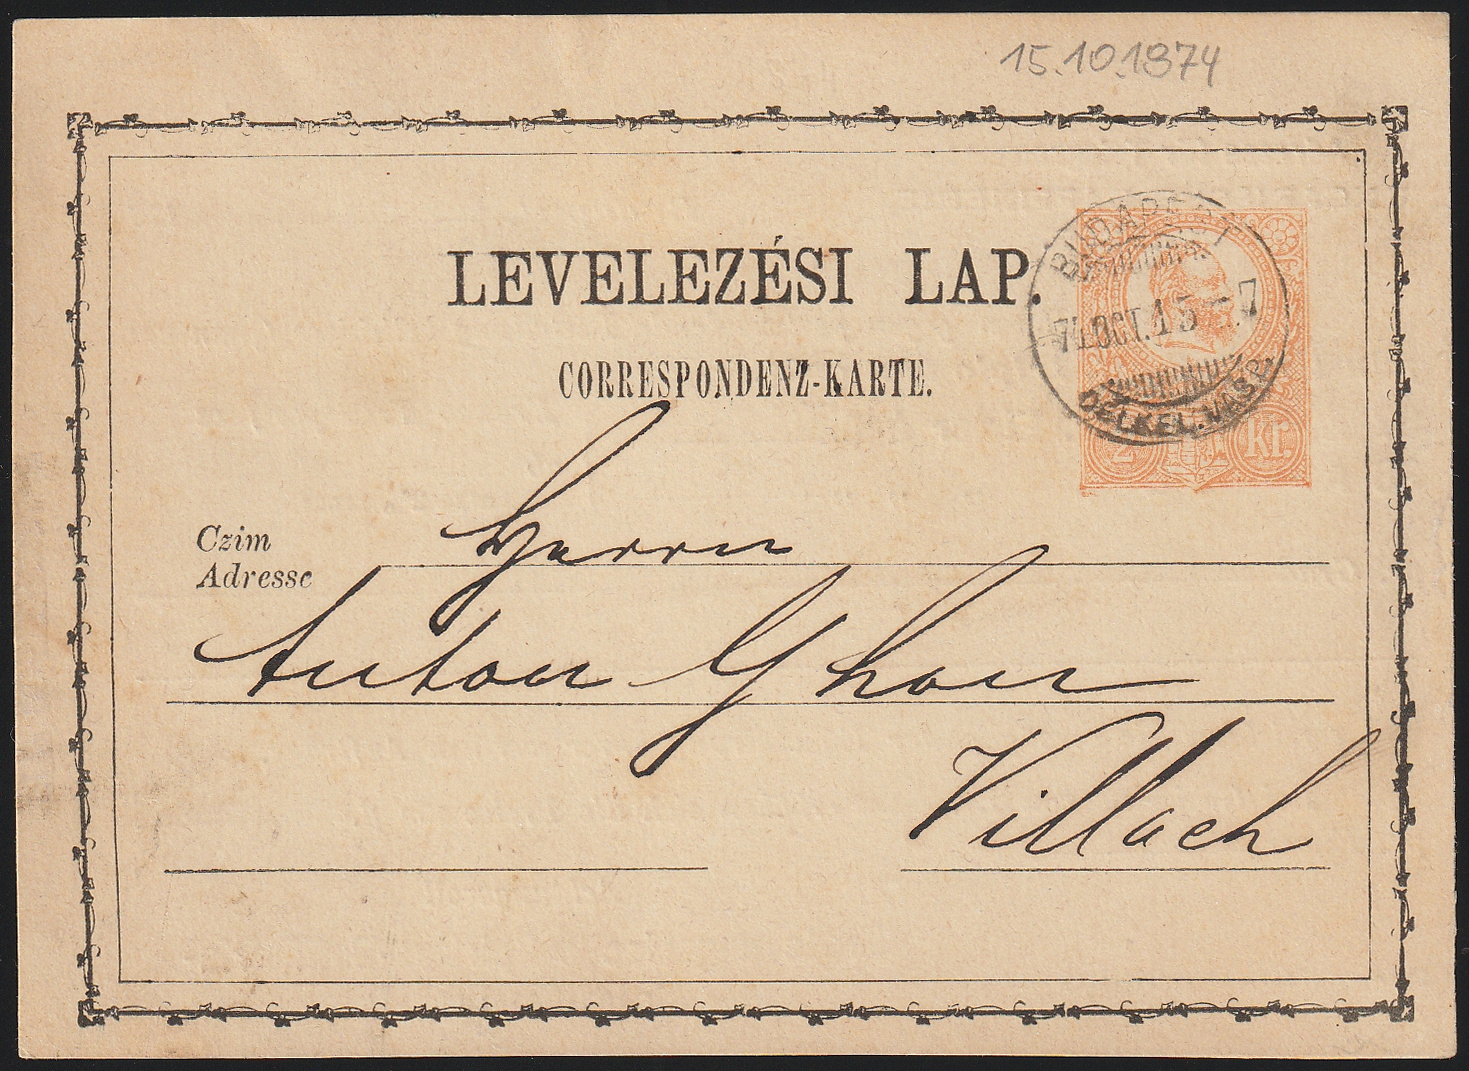 15.10.1874
LEVELEZÉSI LAP.
CORRESPONDENZ-KARTE.
BUDAPEST
74 OCT. 15 - 7
DÉLKEL. VASP.
2 kr.
Czim
Adresse
Herrn
Anton Ghon
Villach